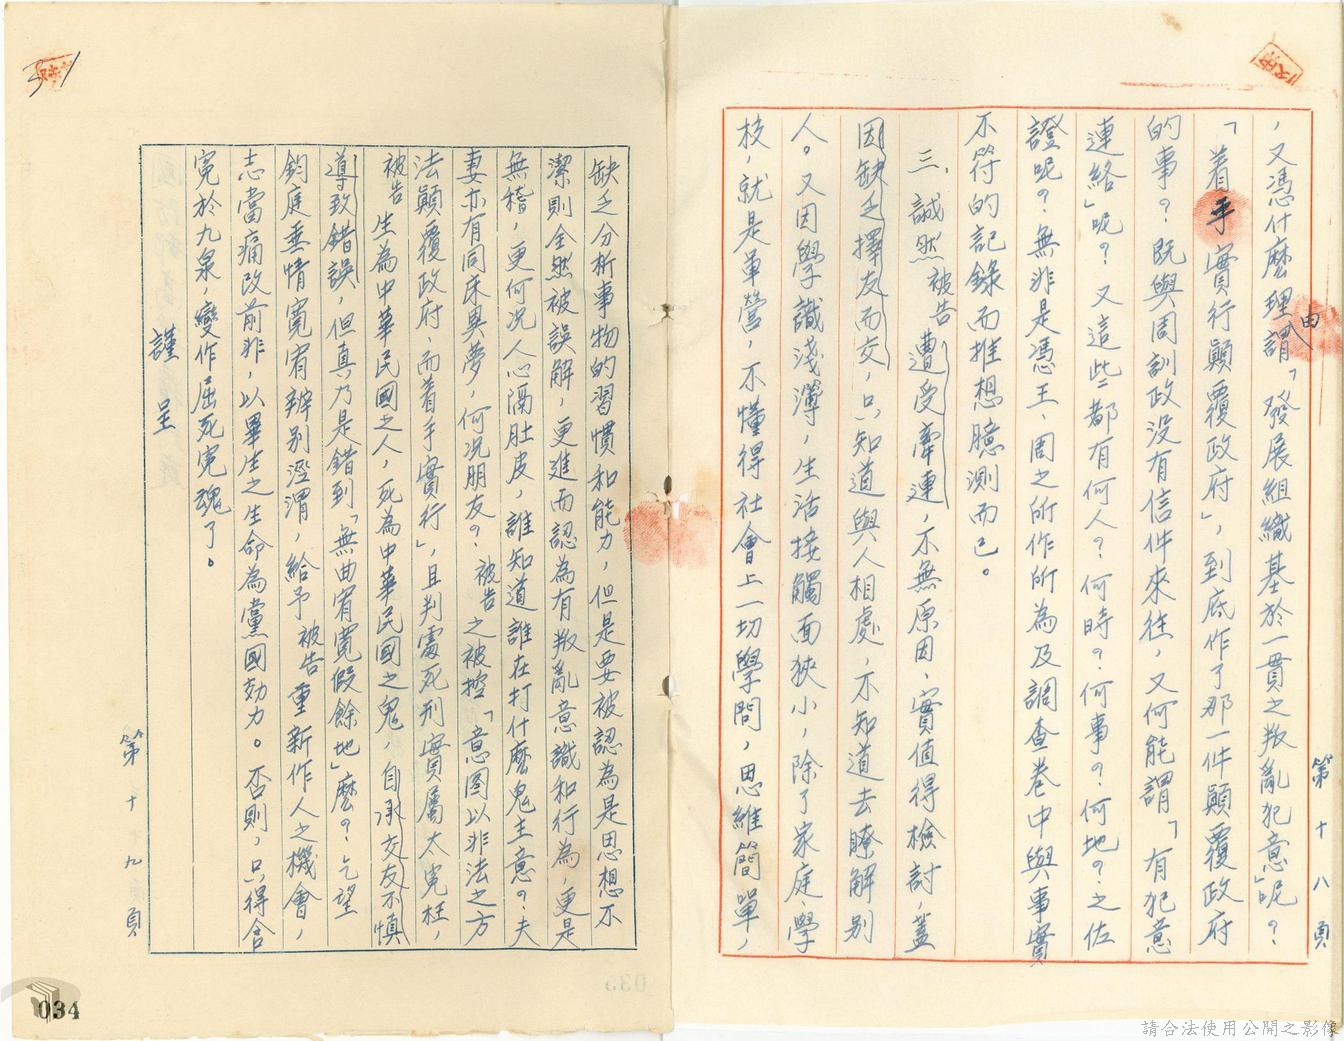 ，又憑什麼理由謂「發展組織基於一貫之叛亂犯意」呢？
「着手實行顛覆政府」，到底作了那一件顛覆政府
的事？既與周訓政没有信件來往，又何能謂「有犯意
連絡」呢？又這些都有何人？何時？何事？何地？之佐
證呢？無非是憑王、周之所作所為及調查卷中與事實
不符的記錄而推想臆測而已。
三、誠然被告遭受牽連，不無原因，實值得檢討，蓋
因缺乏擇友而交，只知道與人相處，不知道去瞭解別
人。又因學識淺薄，生活接觸面狹小，除了家庭、學
校，就是軍營，不懂得社會上一切學問，思維簡單，
第十八頁
缺乏分析事物的習慣和能力，但是要被認為是思想不
潔則全然被誤解，更進而認為有叛亂意識和行為，更是
無稽，更何況人心隔肚皮，誰知道誰在打什麼鬼主意？夫
妻亦有同床異夢，何況朋友？被告之被控「意图以非法之方
法顛覆政府、而着手實行」，且判處死刑實屬太寃枉，
被告生為中華民國之人，死為中華民國之鬼，自承交友不慎
導致錯誤，但真乃是錯到「無曲宥寬假餘地」麼？乞望
鈞庭垂情寬宥辨別涇渭，給予被告重新作人之機會，
志當痛改前非，以畢生之生命為黨國効力。否則，只得含
寃於九泉，變作屈死寃魂了。
謹呈
第十九頁
31
034
請合法使用公開之影像